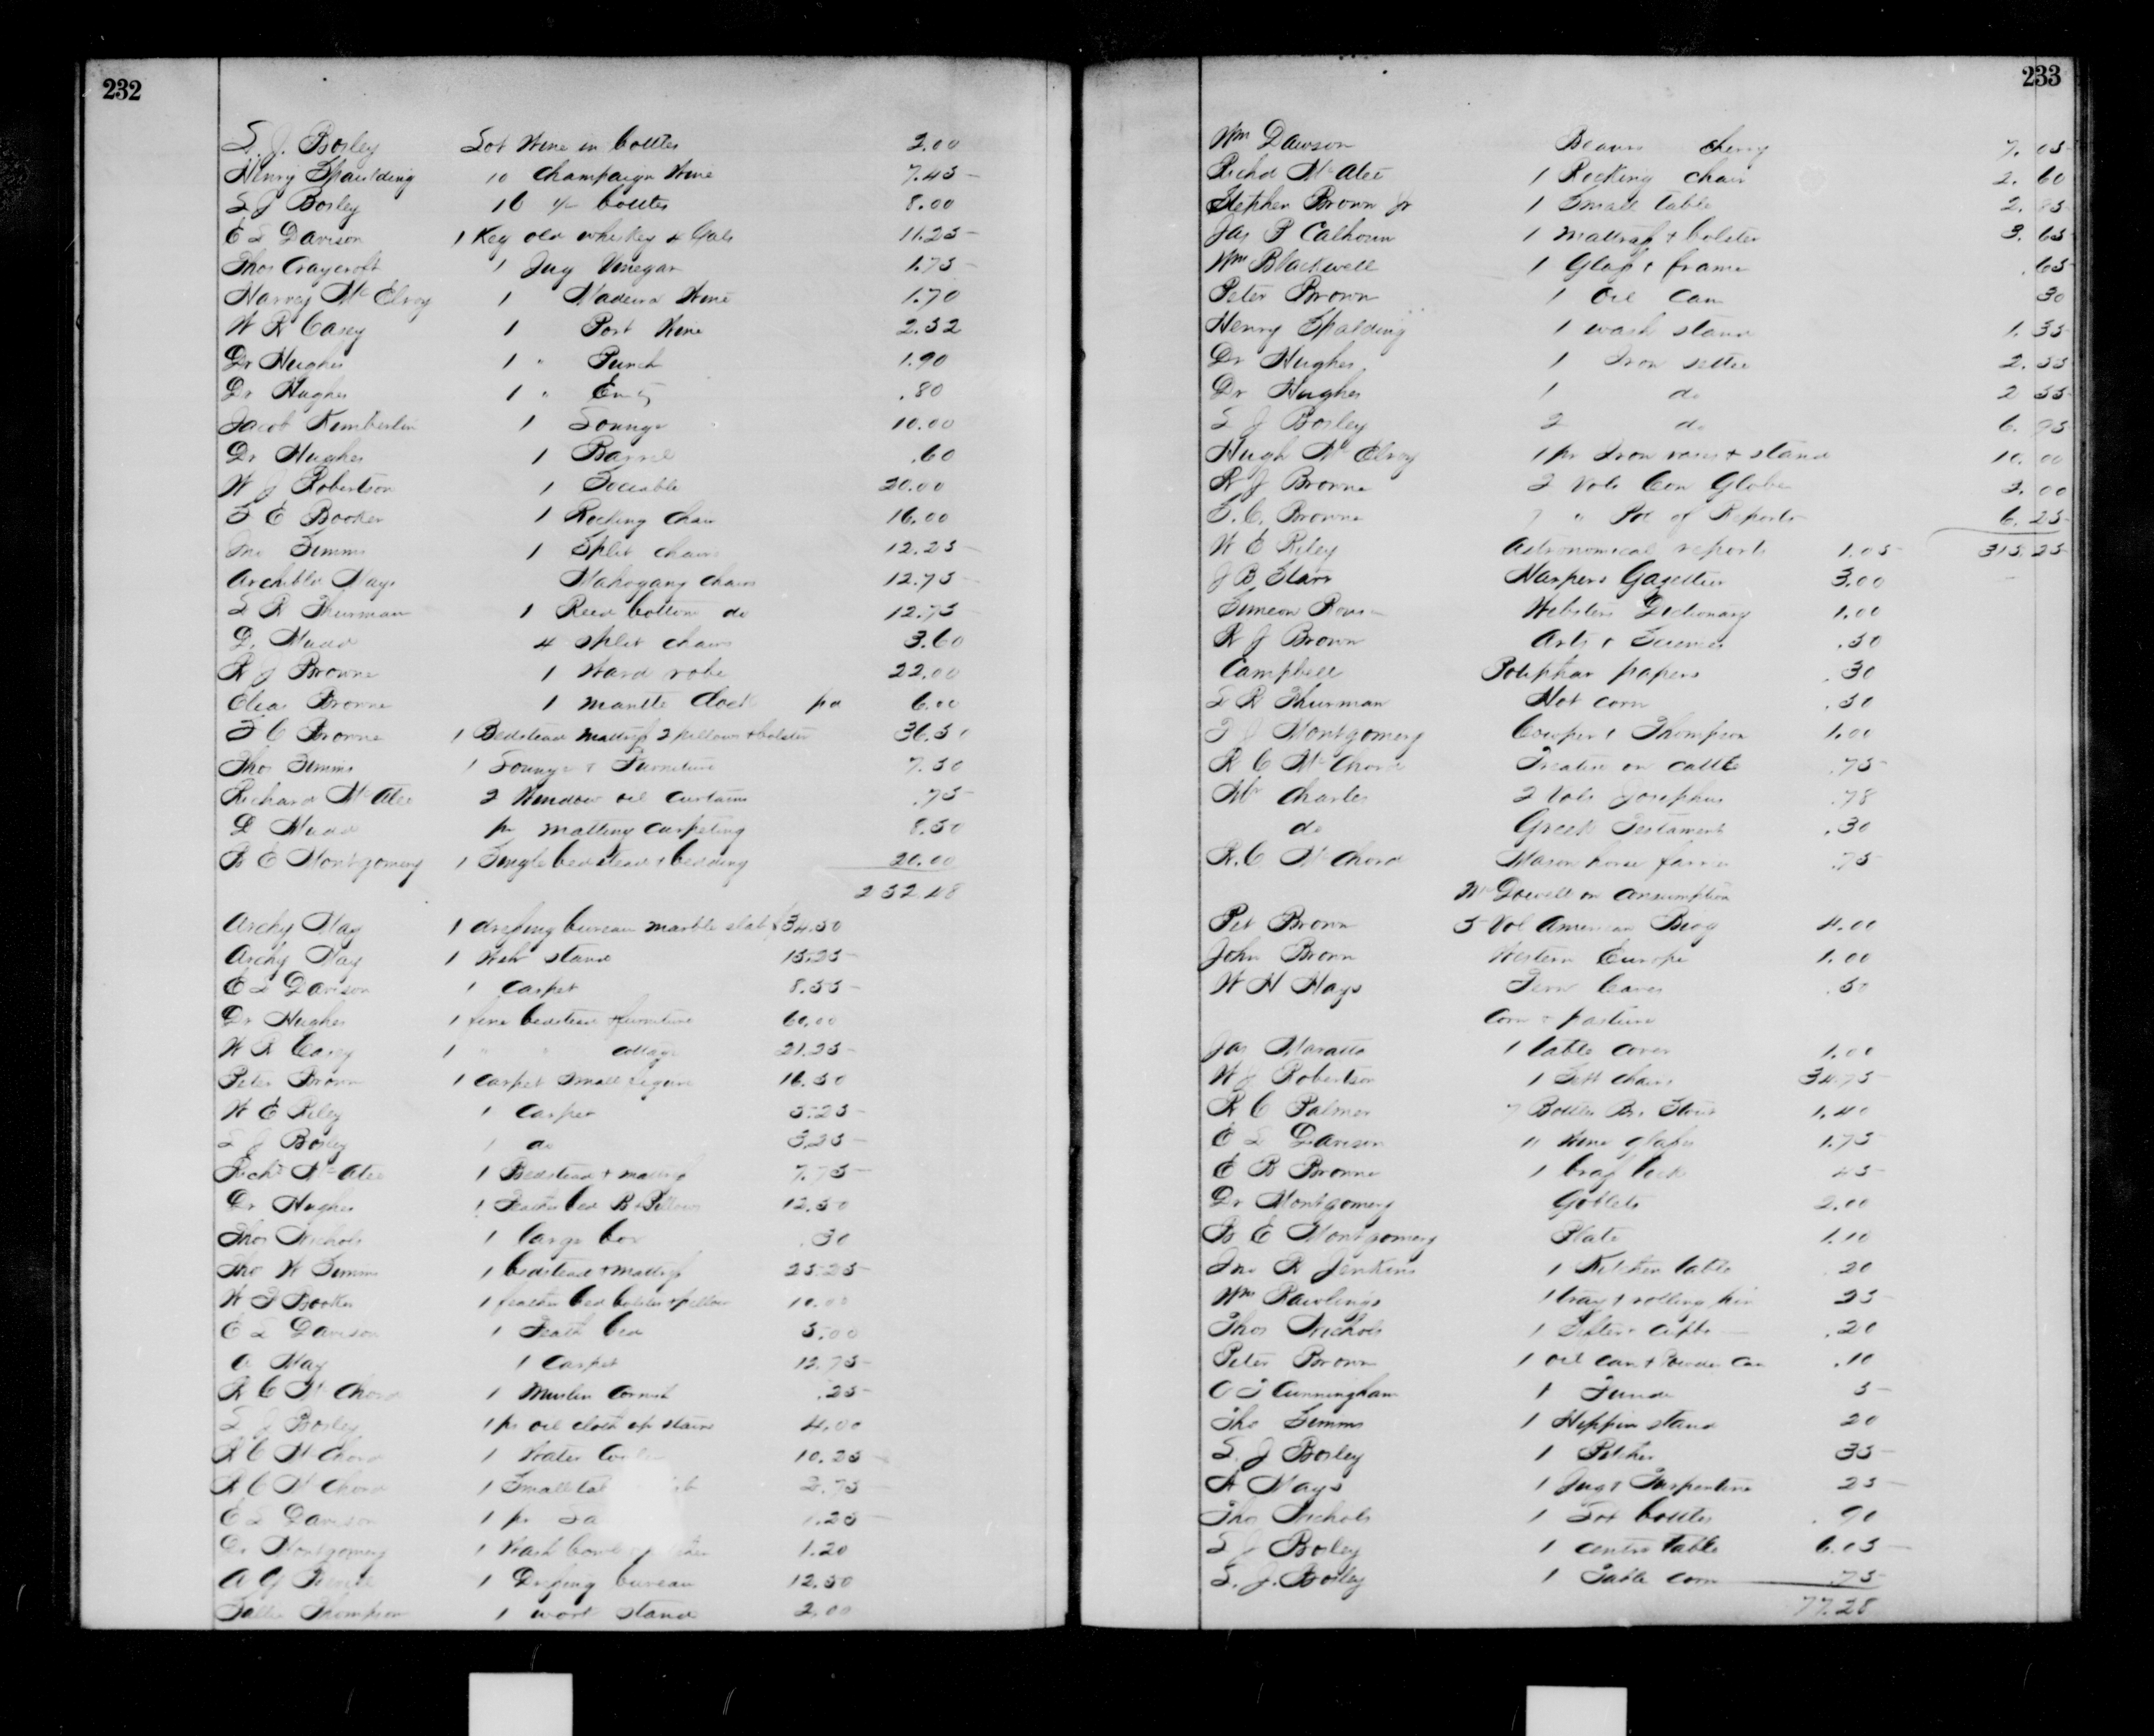 232
S. J. Bosley Lot Wine in bottles 2.00
Henry Spaulding 10 Champaign Wine 7.45
S J Bosley 16 bottles 8.00
E L Davison 1 Keg old whiskey 4 Gals 11.25
Thos Craycroft 1 Jug Vinegar 1.75
Harvey McElroy 1 Madeira Wine 1.70
W R Casey 1 Port Wine 2.32
Dr Hughes 1 " Punch 1.90
Dr Hughes 1 " .80
Jacob Kimberlin 1 Lounge 10.00
Dr Hughes 1 Barrel .60
W J Robertson 1 Sociable 20.00
S E Booker 1 Rocking Chair 16.00
Jno Simms 1 Split chairs 12.25
Archibld Mays Mahogany Chairs 12.75
S R Thurman 1 Reed bottom do 12.75
L. Mudd 4 Split chairs 3.60
R J Browne 1 Ward robe 22.00
Elias Browne 1 mantle Clock pd 6.00
S C Browne 1 Bedstead Mattrass 2 pillows & bolster 36.50
Thos Simms 1 Lounge & Furniture 7.50
Richard McAtee 2 Window oil curtains .75
L Mudd pr matting carpeting 8.50
R E Montgomery 1 Single bedstead & bedding 20.00
232.48
Archy May 1 dressing bureau marble slab $34.50
Archy May 1 stand 15.25
E L Davison 1 Carpet 8.55
Dr Hughes 1 fine bedstead & furniture 60.00
W R Casey 1 " " cottage 21.25
Peter Brown 1 Carpet Small figure 16.50
W E Riley 1 Carpet 5.25
S J Bosley 1 do 3.25
Richd McAtee 1 Bedstead & mattrass 7.75
Dr Hughes 1 Feather bed B & Pillows 12.50
Thos Nichols 1 large box .30
Tho W Simms 1 bedstead & mattrass 25.25
W F Booker 1 feather bed bolster & pillow 10.00
E L Davison 1 Feath bed 5.00
A May 1 Carpet 12.75
R C McChord 1 Muslin Cornish .25
S J Bosley 1 ps oil cloth up stairs 4.00
R C McChord 1 Water 10.25
R C McChord 1 Small 2.75
E L Davison 1 pr 1.25
Dr Montgomery 1 Wash bowl 1.20
A G 1 Dressing bureau 12.50
Sallie Thompson 1 work stand 2.00
233
Wm Dawson Beaurs cherry 7.05
Richd McAtee 1 Rocking chair 2.60
Stephen Brown Jr 1 Small table 2.85
Jas P Calhoun 1 Mattrass & bolster 3.65
Wm Blackwell 1 Glass & frame .65
Peter Brown 1 Oil Can 30
Henry Spalding 1 wash stand 1.35
Dr Hughes 1 Iron settee 2.55
Dr Hughes 1 do 2 55
S J Bosley 2 do 6.95
Hugh McElroy 1 pr Iron vases & stand 10.00
R J Browne 2 Vols Con Globe 2.00
S. C. Browne 7 " Pot of Reports 6.25
W E Riley Astronomical reports 1.05 315.25
J B Starr Harpers Gazetteer 3.00
Simeon Websters Dictionary 1.00
R J Brown Arts & Sciences .50
Campbell Potiphar papers .30
S R Thurman Hot corn .50
T J Montgomery Cowper & Thompson 1.00
R C McChord Treatise on cattle .75
Mr Charles 2 Vols Josephus .78
do Greek Testament .30
R. C McChord Mason horse farrier .75
McDowell on Consumption
Pet Brown 5 Vol American Biog 4.00
John Brown Western Europe 1.00
W H Hays Fern leaves .50
Corn & pasture
Jas Maratta 1 table cover 1.00
W J Robertson 1 Sett chairs 34.75
R C Palmer 7 Bottles 1.40
E L Davison 11 Wine glasses 1.75
E B Browne 1 brass lock 45
Dr Montgomery Goblets 2.00
B E Montgomery Plate 1.10
Jno R Jenkins 1 Kitchen table 20
Wm Rawlings 1 tray & rolling pin 25
Thos Nichols 1 Sifter .20
Peter Brown 1 oil can & Powder Can .10
O T Cunningham 1 5
Tho Simms 1 stand 20
S. J Bosley 1 Pitcher 35
A Mays 1 Jug & Turpentine 25
Thos Nichols 1 Lot bottles .90
S J Bosley 1 centre table 6.05
S. J. Bosley 1 Table .75
77.28